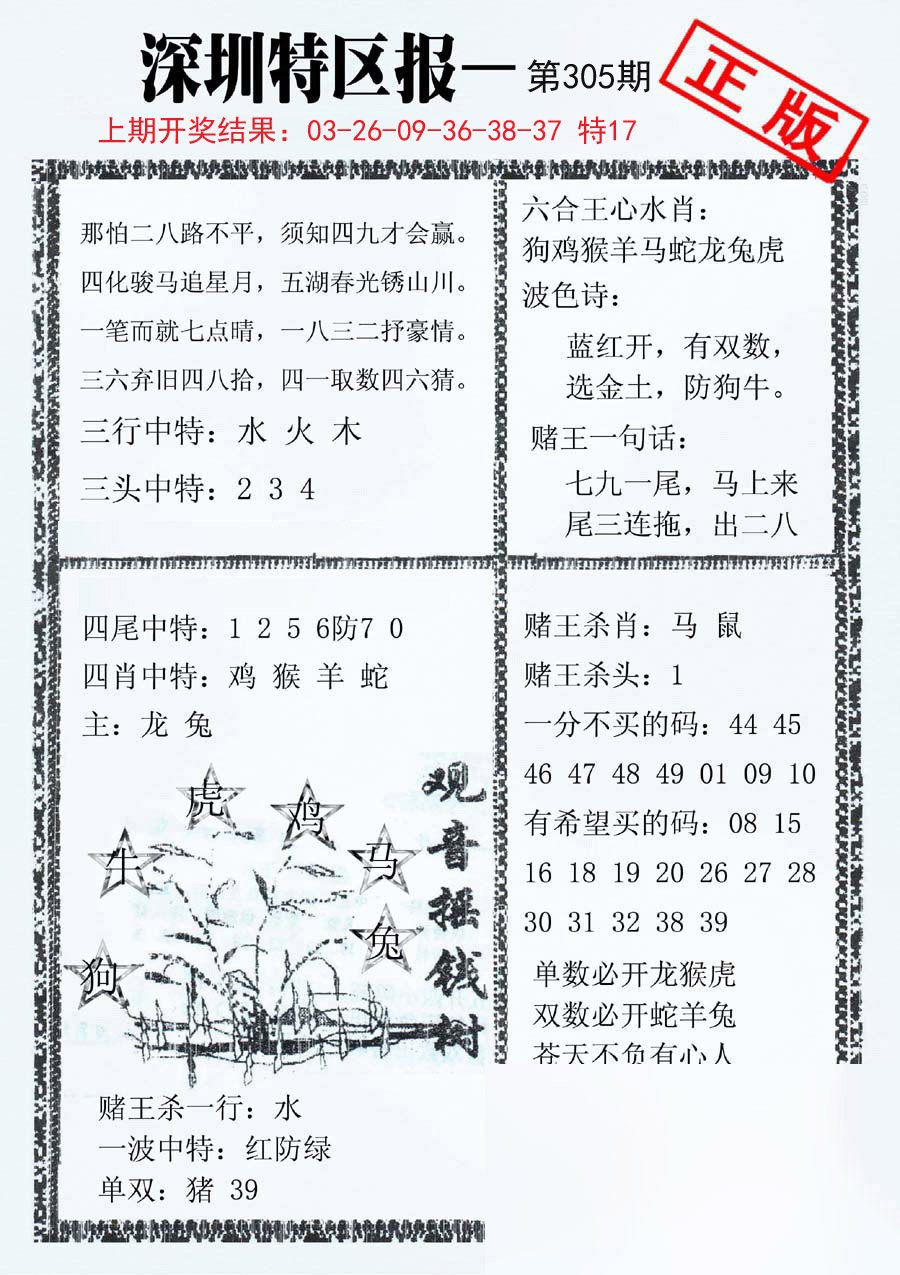 深圳特区报一 第305期
正版
上期开奖结果：03-26-09-36-38-37 特17
那怕二八路不平，须知四九才会赢。
四化骏马追星月，五湖春光锈山川。
一笔而就七点晴，一八三二抒豪情。
三六弃旧四八拾，四一取数四六猜。
三行中特：水 火 木
三头中特：2 3 4
六合王心水肖：
狗鸡猴羊马蛇龙兔虎
波色诗：
蓝红开，有双数，
选金土，防狗牛。
赌王一句话：
七九一尾，马上来
尾三连拖，出二八
四尾中特：1 2 5 6防7 0
四肖中特：鸡 猴 羊 蛇
主：龙 兔
虎
鸡
牛
马
兔
狗
观音摇钱树
赌王杀一行：水
一波中特：红防绿
单双：猪 39
赌王杀肖：马 鼠
赌王杀头：1
一分不买的码：44 45
46 47 48 49 01 09 10
有希望买的码：08 15
16 18 19 20 26 27 28
30 31 32 38 39
单数必开龙猴虎
双数必开蛇羊兔
苍天不负有心人